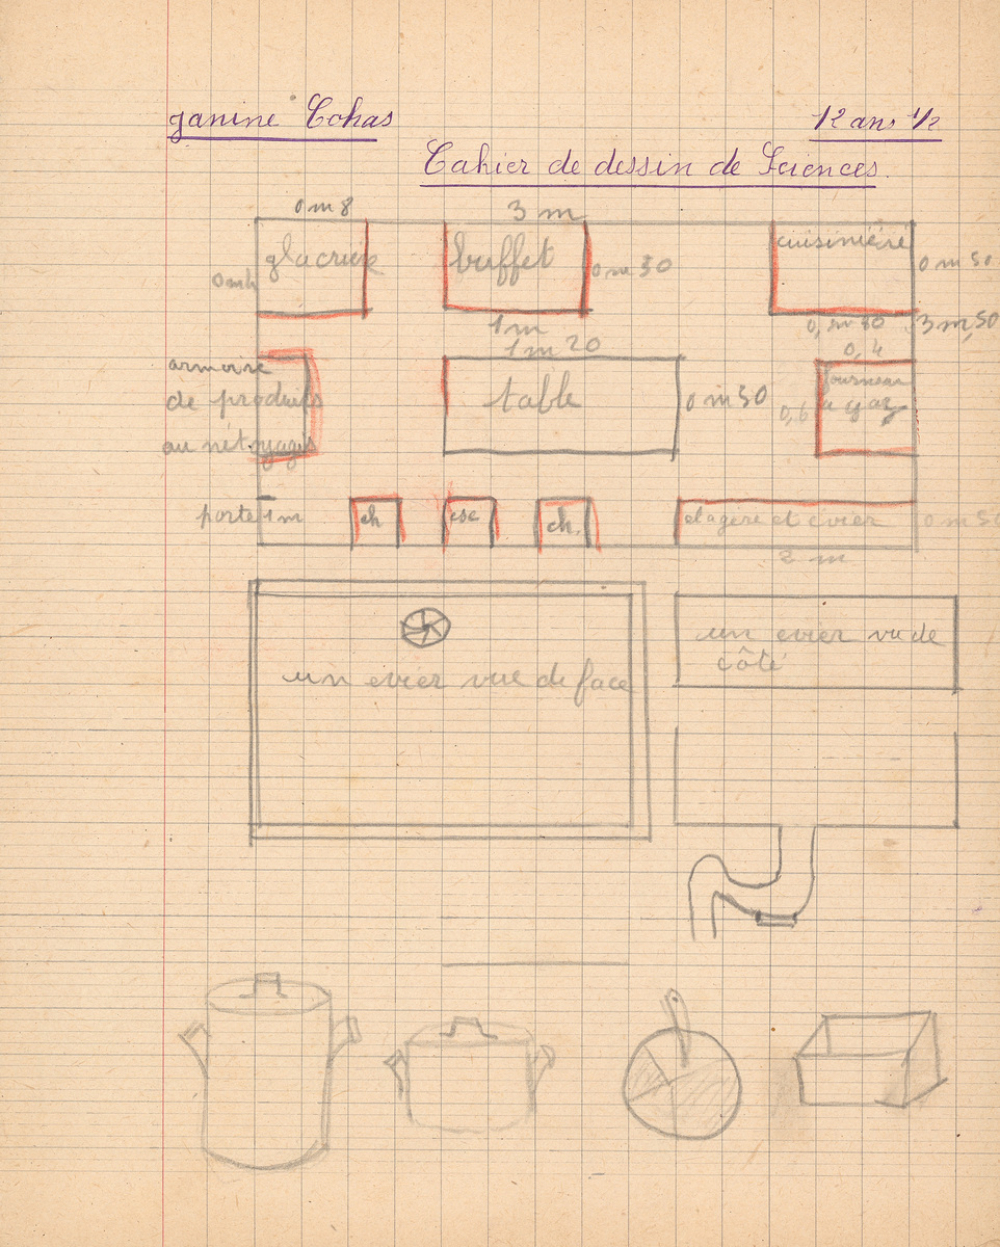 Janine Cohas
12 ans 1/2
Cahier de dessin de Sciences.
0 m 8
3 m
glacière
buffet
cuisinière
0 m 50
0 m 30
1 m
3 m, 50
1 m 20
0,4
armoire
de produits
au nétoyages
table
0 m 50
0,6
fourneau
à gaz
porte 1 m
ch
esc
ch.
etagère et evier
0 m 50
2 m
un evier vue de face
un evier vu de
côté